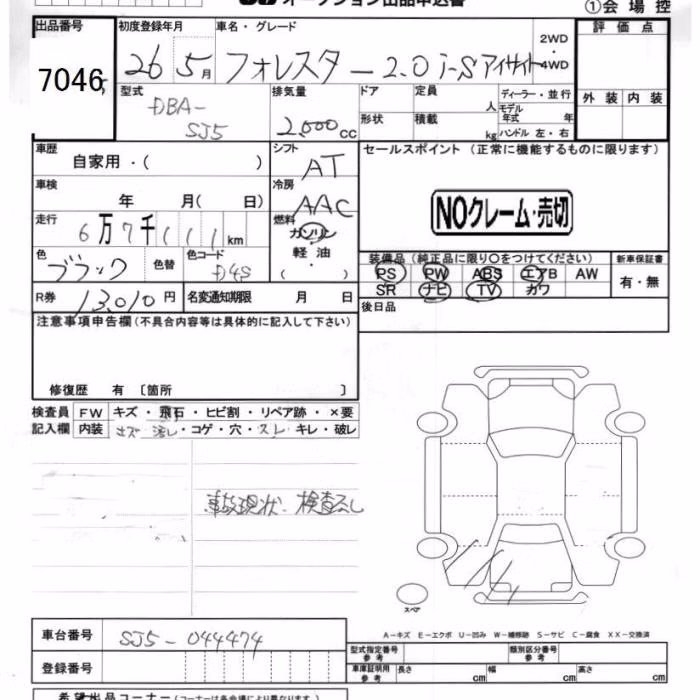 オークション出品申込書
①会場控
出品番号
7046
初度登録年月
26 5月
車名・グレード
フォレスター 2.0 i-S アイサイト
2WD
4WD
評価点
外装 内装
型式
DBA-
SJ5
排気量
2,000cc
ドア
形状
定員
人
積載
kg
ディーラー・並行
モデル
年式 年
ハンドル 左・右
車歴
自家用・( )
シフト
AT
セールスポイント (正常に機能するものに限ります)
NOクレーム・売切
車検
年 月(日)
冷房
AAC
走行
6万7千111km
燃料
ガソリン
軽油
( ・ )
色
ブラック
色替
色コード
D4S
装備品(純正品に限り〇をつけてください)
PS PW ABS エアB AW
SR ナビ TV カワ
新車保証書
有・無
R券
13,010円
名変通知期限 月 日
後日品
注意事項申告欄(不具合内容等は具体的に記入して下さい)
修復歴 有〔箇所 〕
検査員
記入欄
FW キズ・飛石・ヒビ割・リペア跡・×要
内装 キズ 汚レ・コゲ・穴・スレ キレ・破レ
事故現状、検査なし
スペア
A-キズ E-エクボ U-凹み W-補修跡 S-サビ C-腐食 XX-交換済
車台番号
SJ5-044474
登録番号
型式指定番号
参考
類別区分番号
参考
車庫証明用
参考
長さ cm 幅 cm 高さ cm
希望出品コーナー(コーナーは各会場により異なります)